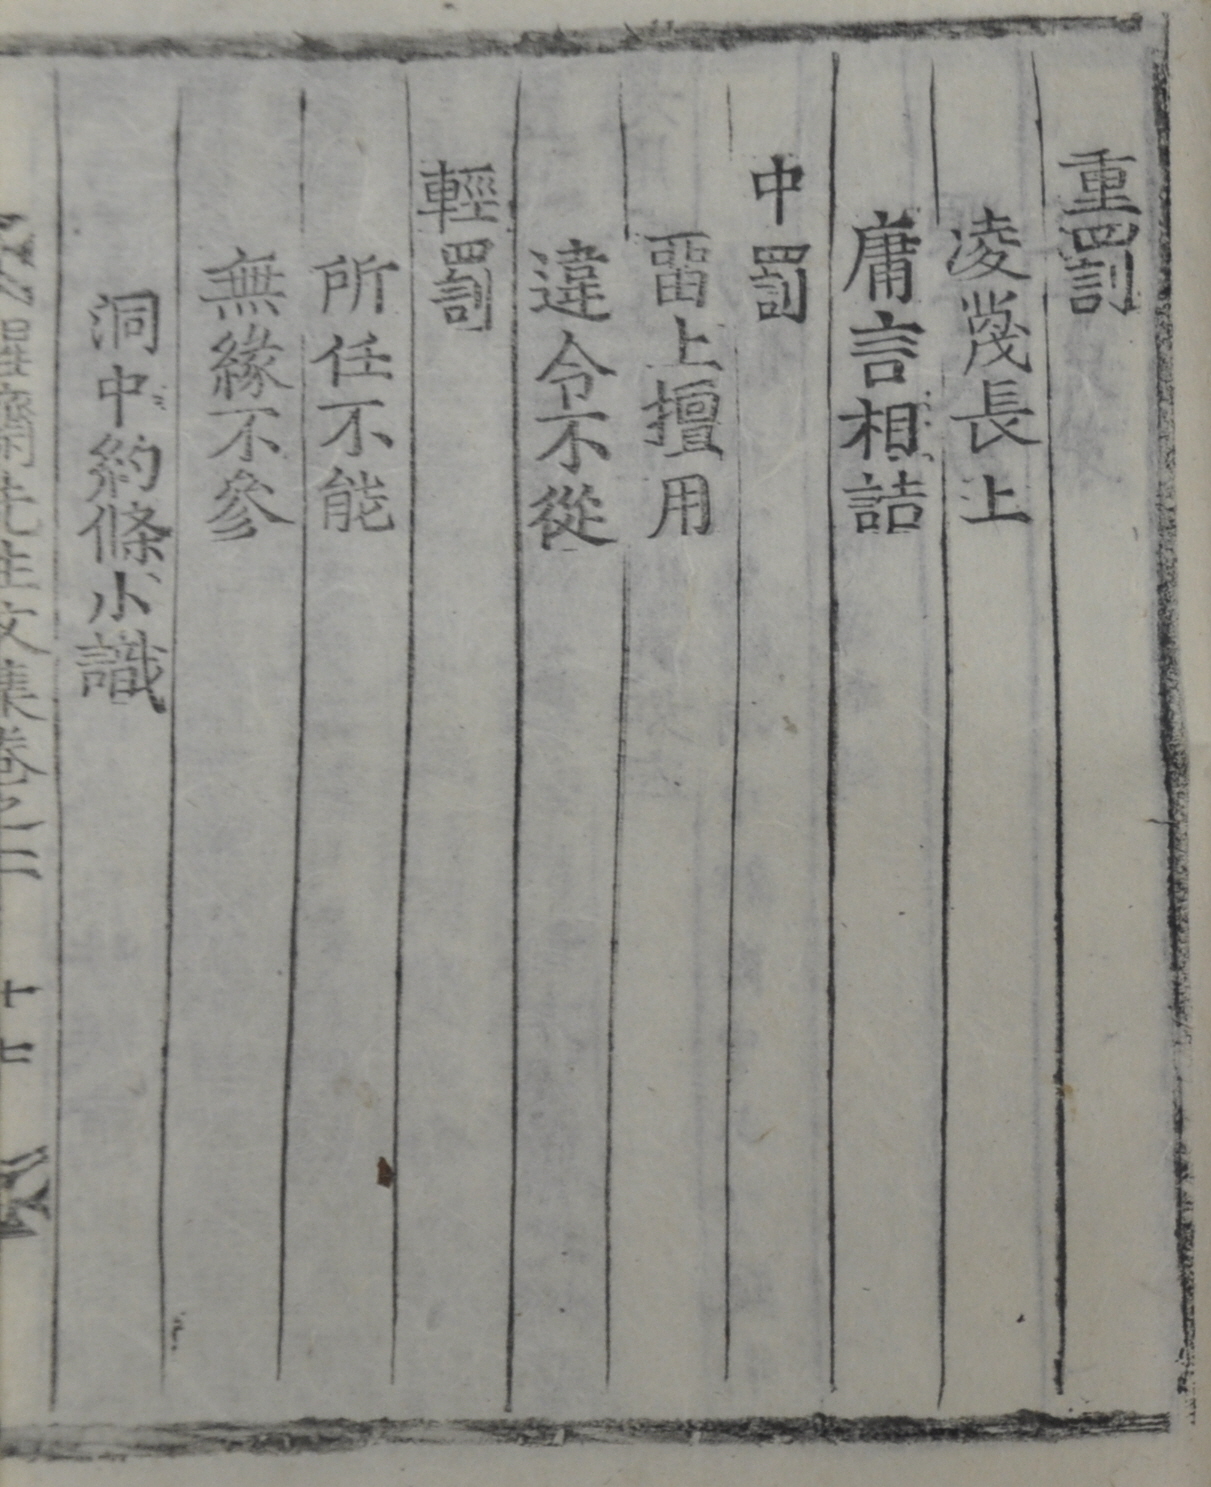 重罰
凌蔑長上
庸言相詰
中罰
畱上擅用
違令不從
輕罰
所任不能
無緣不參
洞中約條小識
齋先生文集卷之二